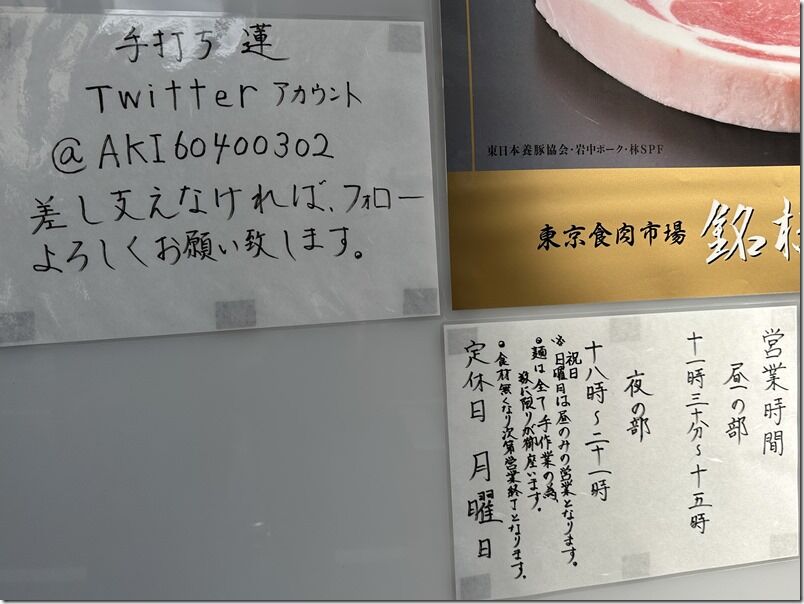 手打ち 蓮
Twitter アカウント
@AKI60400302
差し支えなければ、フォロー
よろしくお願い致します。
東日本養豚協会・岩中ポーク・林SPF
東京食肉市場 銘
営業時間
昼の部
十一時三十分～十五時
夜の部
十八時～二十一時
※祝日
日曜日は昼のみの営業となります。
●麺は全て手作業の為、
数に限りが御座います。
●食材無くなり次第営業終了となります。
定休日 月曜日